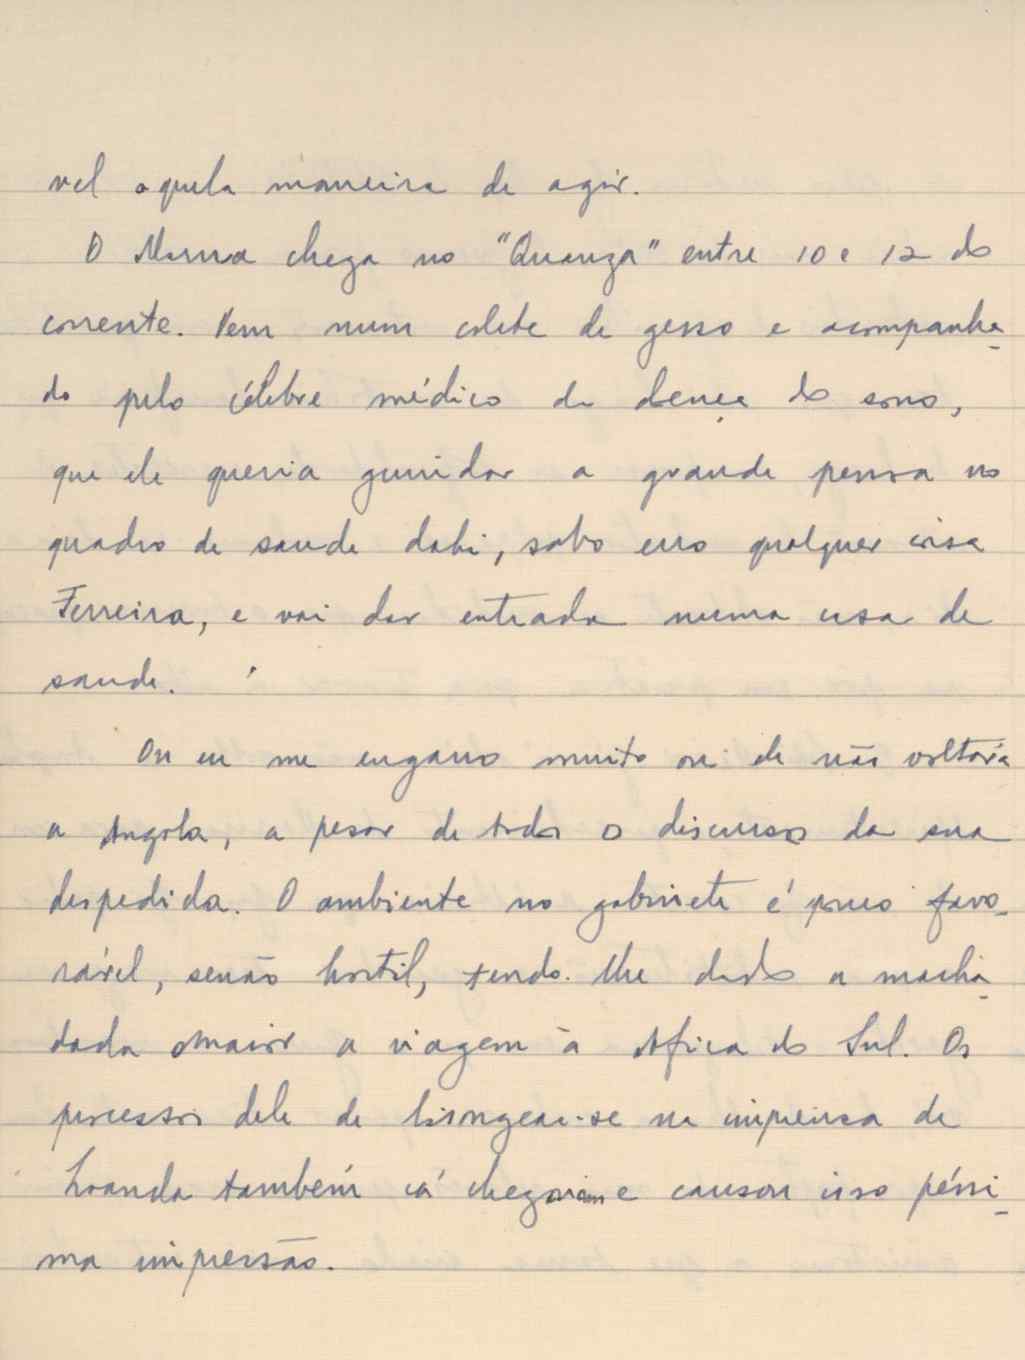 vel aquela maneira de agir.
O Mourra chega no "Quanza" entre 10 e 12 do
corrente. Vem num colete de gesso e acompanha-
do pelo célebre médico da doença do sono,
que ele queria guindar a grande pessoa no
quadro de saude dahi, salvo erro qualquer coisa
Ferreira, e vai dar entrada numa casa de
saude.
Ou eu me engano muito ou ele não voltará
a Angola, a pesar de todo o discurso da sua
despedida. O ambiente no gabinete é pouco favo-
rável, senão hostil, tendo-lhe dado a macha-
dada maior a viagem à Africa do Sul. Os
processos dele de lisongear-se na imprensa de
Loanda também cá chegaram e causou isso péssi-
ma impressão.